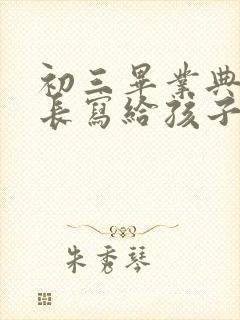 初三畢業典
長寫給孩子
朱秀琴